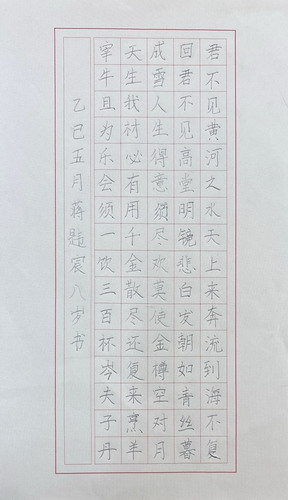 君不见黄河之水天上来奔流到海不复
回君不见高堂明镜悲白发朝如青丝暮
成雪人生得意须尽欢莫使金樽空对月
天生我材必有用千金散尽还复来烹羊
宰牛且为乐会须一饮三百杯岑夫子丹
乙巳五月蒋宸八岁书